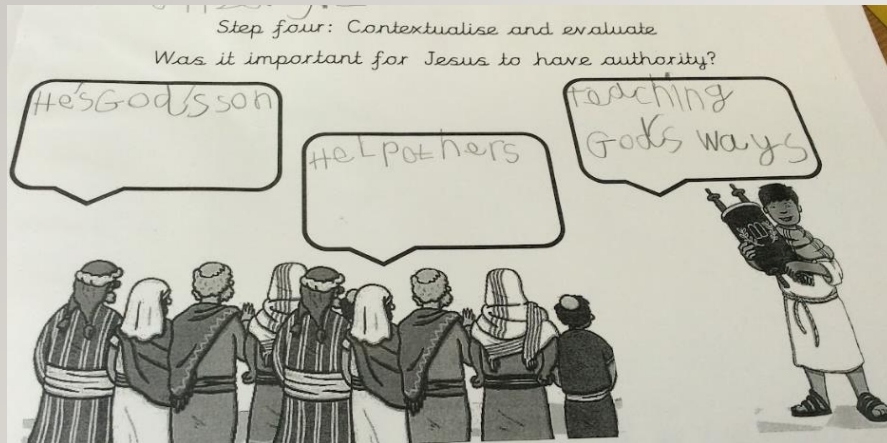 Step four: Contextualise and evaluate
Was it important for Jesus to have authority?
He's God's son
Help others
teaching
God's ways